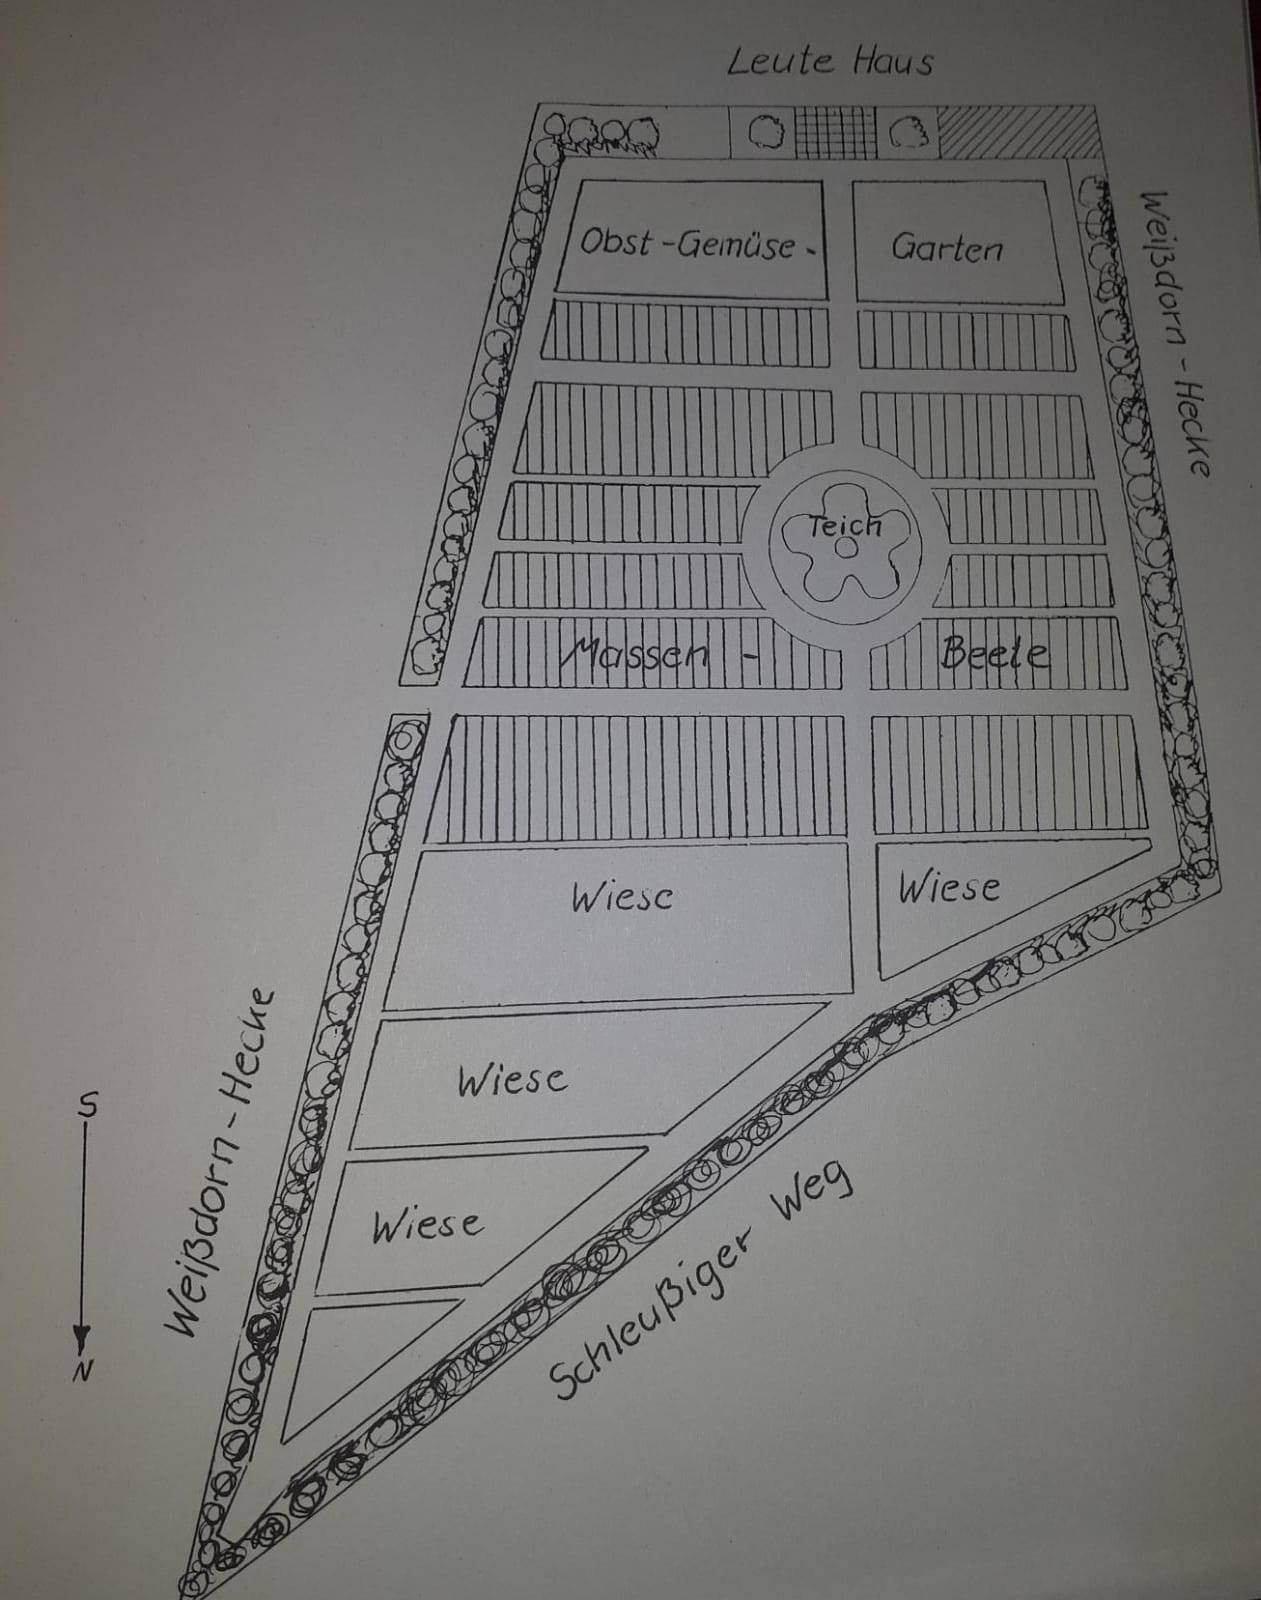 Leute Haus
Obst-Gemüse-
Garten
Weißdorn-Hecke
Teich
Massen -
Beete
Wiese
Wiese
Weißdorn-Hecke
Wiese
S
Wiese
Schleußiger Weg
N